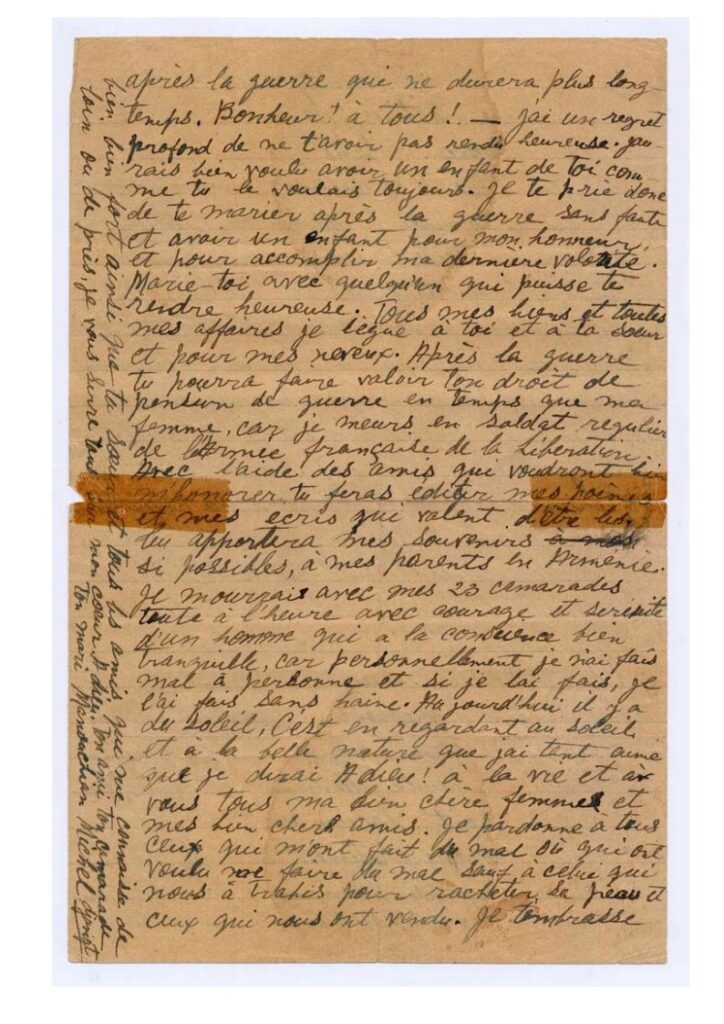 après la guerre qui ne durera plus long-
temps. Bonheur ! à tous ! — j'ai un regret
profond de ne t'avoir pas rendu heureuse. j'au-
rais bien voulu avoir un enfant de toi com-
me tu le voulais toujours. Je te prie donc
de te marier après la guerre sans faute
et avoir un enfant pour mon honneur,
et pour accomplir ma dernière volonté.
Marie-toi avec quelqu'un qui puisse te
rendre heureuse. Tous mes biens et toutes
mes affaires je lègue à toi et à ta sœur
et pour mes neveux. Après la guerre
tu pourra faire valoir ton droit de
pension de guerre en temps que ma
femme, car je meurs en soldat regulier
de l'Armee française de la Libération.
Avec l'aide des amis qui voudront bi
m'honorer tu feras éditer mes poèm
et mes ecris qui valent d'être lus,
tu apportera mes souvenirs a mes
si possibles, à mes parents en Arménie.
Je mourrais avec mes 23 camarades
toute à l'heure avec courage et serénité
d'un homme qui a la conscience bien
tranquille, car personnellement je n'ai fais
mal à personne et si je l'ai fais, je
l'ai fais sans haine. Aujourd'hui il y a
du soleil. C'est en regardant au soleil
et a la belle nature que jai tant aimé
que je dirai Adieu ! à la vie et a
vous tous ma bien chère femme et
mes bien chers amis. Je pardonne à tous
ceux qui m'ont fait du mal où qui ont
voulu me faire du mal sauf à celui qui
nous à trahis pour racheter sa peau et
ceux qui nous ont vendu. Je t'embrasse
bien bien fort ainsi que ta sœur et tous les amis qui me connaisse de
loin ou de près, je vous serre tous sur mon cœur. Adieu. Ton ami ton camarade
Ton mari Manouchian Michel djanigt